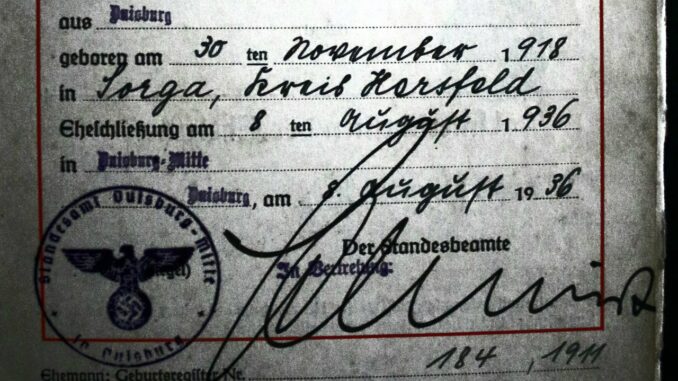 aus Duisburg
geboren am 30 ten November 1918
in Sorga, Kreis Hersfeld
Eheschließung am 8 ten August 1936
in Duisburg-Mitte
Duisburg, am 8. August 1936
Der Standesbeamte
In Vertretung:
(Siegel)
Standesamt Duisburg-Mitte
in Duisburg
Ehemann: Geburtsregister Nr. 184, 1911